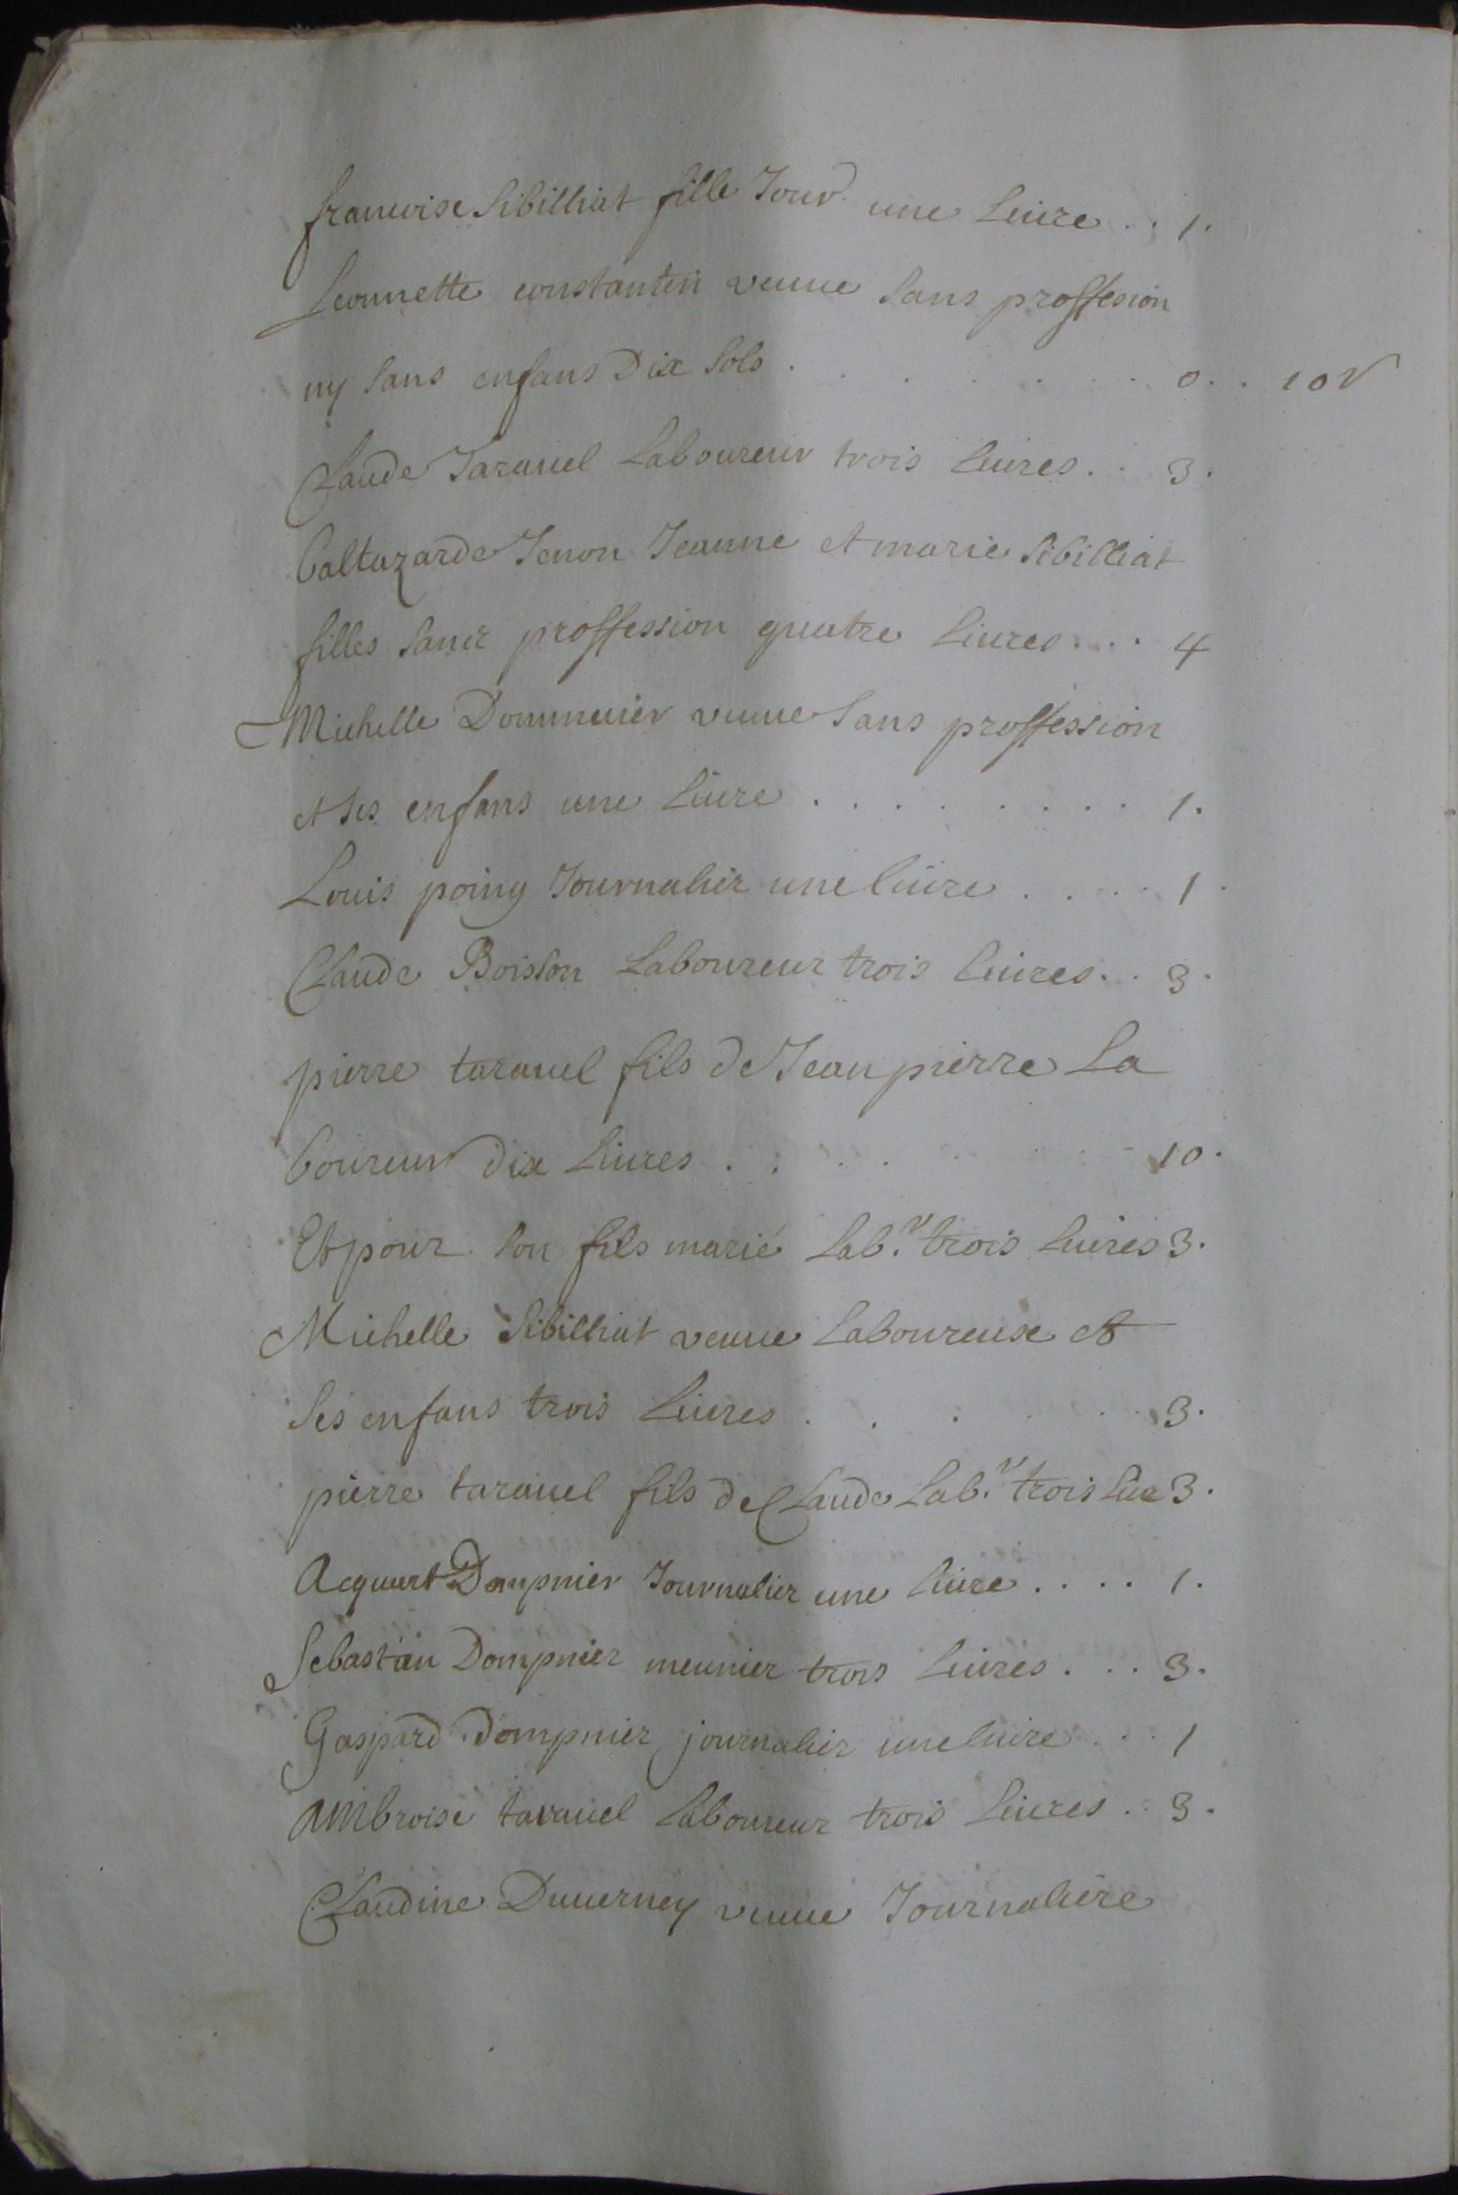 francoise Sibilliat fille Jour une Liure . . 1.
Leonnette constantin veuue Sans proffesion
ny Sans enfans Dix Sols . . . . . . . 0 . . 10
Claude Tarauel Laboureur trois Liures . . 3.
Baltazarde Jenon Jeanne et marie Sibilliat
filles Sans proffession quatre Liures . . . 4
Michelle veuue Sans proffession
et Ses enfans une Liure . . . . . . . 1.
Louis poing Journalier une liure . . . . 1.
Claude Boisson Laboureur trois Liures . . 3.
pierre tarauel fils de Jean pierre La
boureur dix Liures . . . . . . . 10.
Et pour Son fils marié Lab.r trois Liures 3.
Michelle Sibilliat veuue Laboureuse et
Ses enfans trois Liures . . . . . . 3.
pierre tarauel fils de Claude Lab.r trois Liu 3.
Dompnier Journalier une liure . . . . 1.
Sebastien Dompnier meunier trois Liures . . . 3.
Gaspard dompnier journalier une liure . . . 1
ambroise tarauel Laboureur trois Liures . . 3.
Claudine Duuerney veuue Journaliere